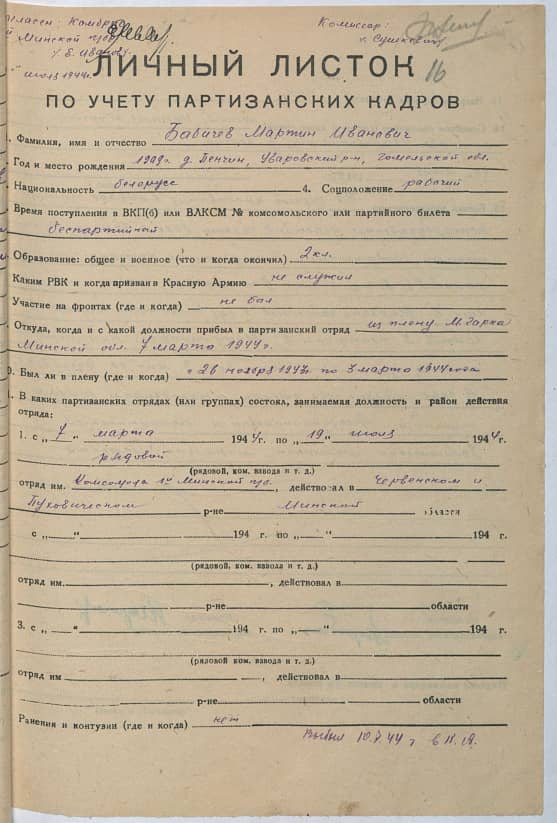 Комиссар:
й Минской п/бр.
16
ЛИЧНЫЙ ЛИСТОК
ПО УЧЕТУ ПАРТИЗАНСКИХ КАДРОВ
. Фамилия, имя и отчество Бабичев Мартин Иванович
. Год и место рождения 1909г. д. Пенчин, Уваровский р-н, Гомельской обл.
. Национальность белорусс 4. Соцположение рабочий
Время поступления в ВКП(б) или ВЛКСМ № комсомольского или партийного билета
беспартийной
. Образование: общее и военное (что и когда окончил) 2 кл.
. Каким РВК и когда призван в Красную Армию не служил
Участие на фронтах (где и когда) не был
. Откуда, когда и с какой должности прибыл в партизанский отряд из плену М.
Минской обл. 7 марта 1944 г.
0. Был ли в плену (где и когда) с 26 ноября по 3 марта 1944 года
1. В каких партизанских отрядах (или группах) состоял, занимаемая должность и район действия
отряда:
1. с „7“ марта 1944г. по „19“ июля 1944г.
рядовой
(рядовой, ком. взвода и т. д.)
отряд им. Комсомола 1й Минской п/бр., действовал в Червенском и
Пуховическом р-не Минской области
с „ “ 194 г. по „ “ 194 г.
(рядовой, ком. взвода и т. д.)
отряд им. , действовал в
р-не области
3. с „ “ 194 г. по „ “ 194 г.
(рядовой ком. взвода и т. д.)
отряд им , действовал в
р-не области
Ранения и контузии (где и когда) нет
Выбыл 44 г. в К.А.